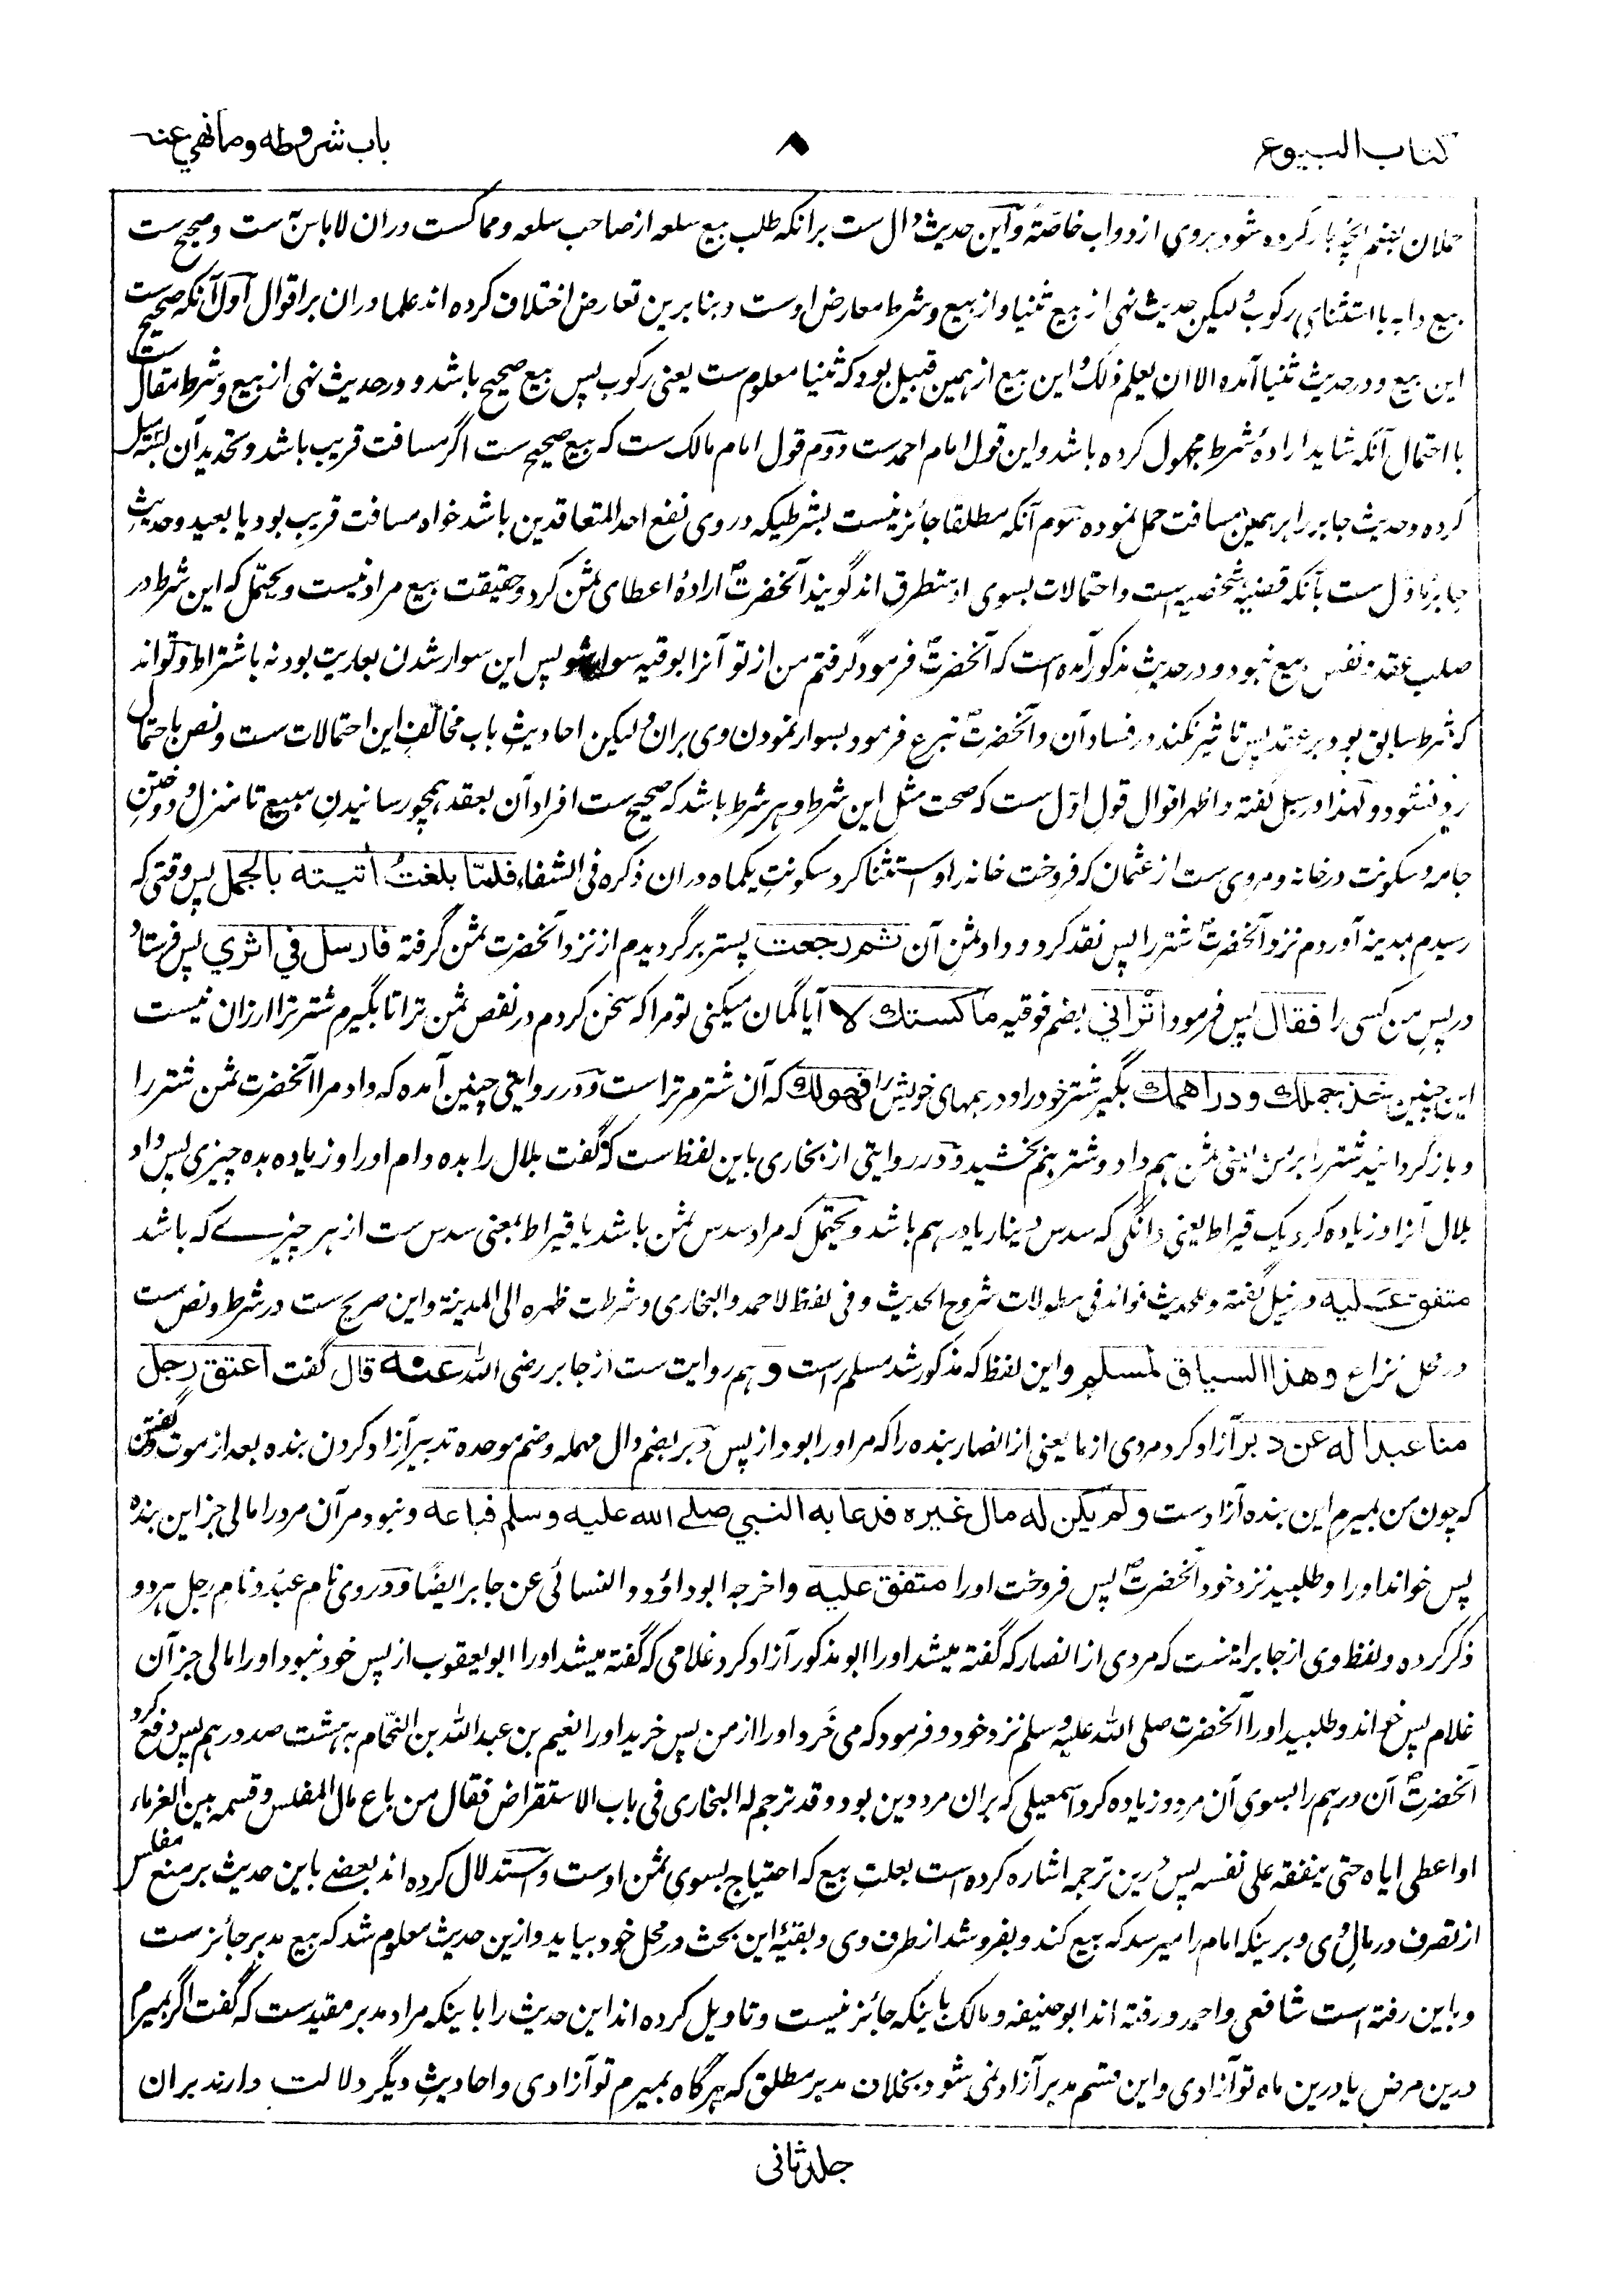 كتاب البيوع
۸
باب شروطه وما نهي عنه
حملان بضم آنچه بار کرده شود بروی از دواب خاصّةً و این حدیث دال ست برانکه طلب بیع سلعه از صاحب سلعه و مماکست دران لا باس ست و صحیح ست
بیع دابه با استثنای رکوب لیکن حدیث نهی از بیع ثنیا و از بیع و شرط معارض اوست و بنابرین تعارض اختلاف کرده اند علما دران بر اقوال اول آنکه صحیح ست
این بیع و در حدیث ثنیا آمده الا ان یعلم ذلک و این بیع از همین قبیل بود که ثنیا معلوم ست یعنی رکوب پس بیع صحیح باشد و در حدیث نهی از بیع و شرط مقال ست
با احتمال آنکه شاید ارادهٔ شرط مجهول کرده باشد و این قول امام احمد ست دوم قول امام مالک ست که بیع صحیح ست اگر مسافت قریب باشد و تحدید آن بسه میل
کرده و حدیث جابر را بر همین مسافت حمل نموده سوم آنکه مطلقا جائز نیست بشرطیکه در وی نفع احد المتعاقدین باشد خواه مسافت قریب بود یا بعید و حدیث
جابر ماوّل ست بآنکه قضیهٔ شخصیه است و احتمالات بسوی او متطرق اند گویند آنحضرت ارادهٔ اعطای ثمن کرد و حقیقت بیع مراد نیست و یحتمل که این شرط در
صلب عقد و نفس بیع نبود و در حدیث مذکور آمده است که آنحضرت فرمود گرفتم من از تو آنرا بوقیه سوار شو پس این سوار شدن بعاریت بود نه باشتراط و تواند
که شرط سابق بود بر عقد پس تاثیر نکند در فساد آن و آنحضرت تبرع فرمود بسوار نمودن وی بران و لیکن احادیث باب مخالف این احتمالات ست و نص باحتمال
رد نشود و لهذا در سبل گفته و اظهر اقوال قول اوّل ست که صحت مثل این شرط و هر شرط باشد که صحیح ست افراد آن بعقد همچو رسانیدن مبیع تا منزل و دوختن
جامه و سکونت در خانه و مروی ست از عثمان که فروخت خانه را و استثنا کرد سکونت یکماه دران ذکره فی الشفاء فلمّا بلغتُ أتيته بالجمل پس وقتی که
رسیدم بمدینه آوردم نزد آنحضرت شتر را پس نقد کرد و داد ثمن آن ثم رجعت پستر برگردیدم از نزد آنحضرت ثمن گرفته فارسل في اثري پس فرستاد
در پس من کسی را فقال پس فرمود اتُراني بضم فوقیه ماكستك لا آیا گمان میکنی تو مرا که سخن کردم در نقص ثمن ترا تا بگیرم شتر ترا ارزان نیست
این چنین خذ جملك و دراهمك بگیر شتر خود را و درهمهای خویش را فهو لك که آن شتر مر ترا ست و در روایتی چنین آمده که داد مرا آنحضرت ثمن شتر را
و باز گردانید شتر را بر من یعنی ثمن هم داد و شتر هم بخشید و در روایتی از بخاری باین لفظ ست که گفت بلال را بده وام او را و زیاده بده چیزی پس داد
بلال آنرا و زیاده کرد یک قیراط یعنی دانگی که سدس دینار یا درهم باشد و یحتمل که مراد سدس ثمن باشد یا قیراط بمعنی سدس ست از هر چیزے که باشد
متفق علیه در نیل گفته و للحدیث فوائد فی مطولات شروح الحدیث و فی لفظ لاحمد و البخاری و شرطت ظهره الی المدینة و این صریح ست در شرط و نص ست
در محل نزاع و هذا السياق لمسلم و این لفظ که مذکور شد مسلم راست و هم روایت ست از جابر رضی الله عنه قال گفت اعتق رجل
منا عبدا له عن دبر آزاد کرد مردی از ما یعنی از انصار بنده را که مر او را بود از پس دبر بضم دال مهمله و ضم موحده تدبیر آزاد کردن بنده بعد از موت و گفتن
که چون من بمیرم این بنده آزاد ست و لم يكن له مال غيره فدعا به النبي صلے الله عليه وسلم فباعه و نبود مر آن مرد را مالی جز این بنده
پس خواند او را و طلبید نزد خود آنحضرت پس فروخت او را متفق عليه و اخرجه ابو داؤد و النسائی عن جابر ایضًا و در وی نام عبد و نام رجل هر دو
ذکر کرده و لفظ وی از جابر اینست که مردی از انصار که گفته میشد او را ابو مذکور آزاد کرد غلامی که گفته میشد او را ابو یعقوب از پس خود نبود او را مالی جز آن
غلام پس خواند و طلبید او را آنحضرت صلی الله علیه وسلم نزد خود و فرمود که می خَرد او را از من پس خرید او را نعیم بن عبد الله بن النحّام به هشت صد درهم پس دفع کرد
آنحضرت آن درهم را بسوی آن مرد و زیاده کرد اسمعیلی که بران مرد دین بود و قد ترجم له البخاری فی باب الاستقراض فقال من باع مال المفلس و قسمه بین الغرماء
او اعطی ایاه حتی ینفقه علی نفسه پس درین ترجمه اشاره کرده است بعلت بیع که احتیاج بسوی ثمن اوست و استدلال کرده اند بعضے باین حدیث بر منع مفلس
از تصرف در مال وی و برینکه امام را میرسد که بیع کند و بفروشد از طرف وی و بقیهٔ این بحث در محل خود بیاید و ازین حدیث معلوم شد که بیع مدبر جائز ست
و باین رفته است شافعی و احمد و رفته اند ابو حنیفه و مالک باینکه جائز نیست و تاویل کرده اند این حدیث را باینکه مراد مدبر مقید ست که گفت اگر بمیرم
درین مرض یا درین ماه تو آزادی و این قسم مدبر آزاد نمی شود بخلاف مدبر مطلق که هرگاه بمیرم تو آزادی و احادیث دیگر دلالت دارند بران
جلد ثانی